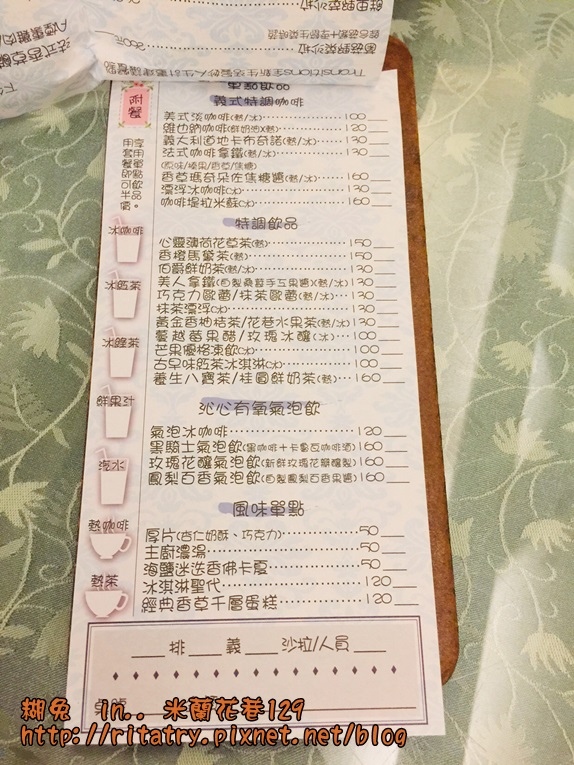 Transitions全新生活藝妙人生計畫建議餐點
單點飲品
附餐
享用套餐附餐單點飲品可半價
義式特調咖啡
美式淡咖啡(熱/冰) 100
維也納咖啡(鮮奶油x熱) 120
義大利道地卡布奇諾(熱/冰) 130
法式咖啡拿鐵(熱/冰) 130
(原味/榛果/香草/焦糖)
香草瑪奇朵佐焦糖醬(熱/冰) 160
漂浮冰咖啡(冰) 130
咖啡堤拉米蘇(冰) 160
特調飲品
心靈薄荷花草茶(熱) 150
香橙馬鞭茶(熱) 150
伯爵鮮奶茶(熱/冰) 130
美人拿鐵(自製桑葚手工果醬x熱/冰) 130
巧克力歐蕾/抹茶歐蕾(熱/冰) 130
抹茶漂浮(冰) 130
黃金香柚桔茶/花巷水果茶(熱/冰) 130
蔓越莓果醋/玫瑰冰釀(冰) 100
芒果優格凍飲(冰) 100
古早味紅茶冰淇淋(冰) 100
養生八寶茶/桂圓鮮奶茶(熱) 160
沁心有氧氣泡飲
氣泡冰咖啡 120
黑騎士氣泡飲(黑咖啡+卡魯瓦咖啡酒) 160
玫瑰花釀氣泡飲(新鮮玫瑰花瓣釀製) 160
鳳梨百香氣泡飲(自製鳳梨百香果醬) 160
風味單點
厚片(杏仁奶酥、巧克力) 50
主廚濃湯 50
海鹽迷迭香佛卡夏 50
冰淇淋聖代 120
經典香草千層蛋糕 120
冰咖啡
冰紅茶
冰綠茶
鮮果汁
汽水
熱咖啡
熱茶
排 義 沙拉/人員
糊兔 in.. 米蘭花巷129
http://ritatry.pixnet.net/blog